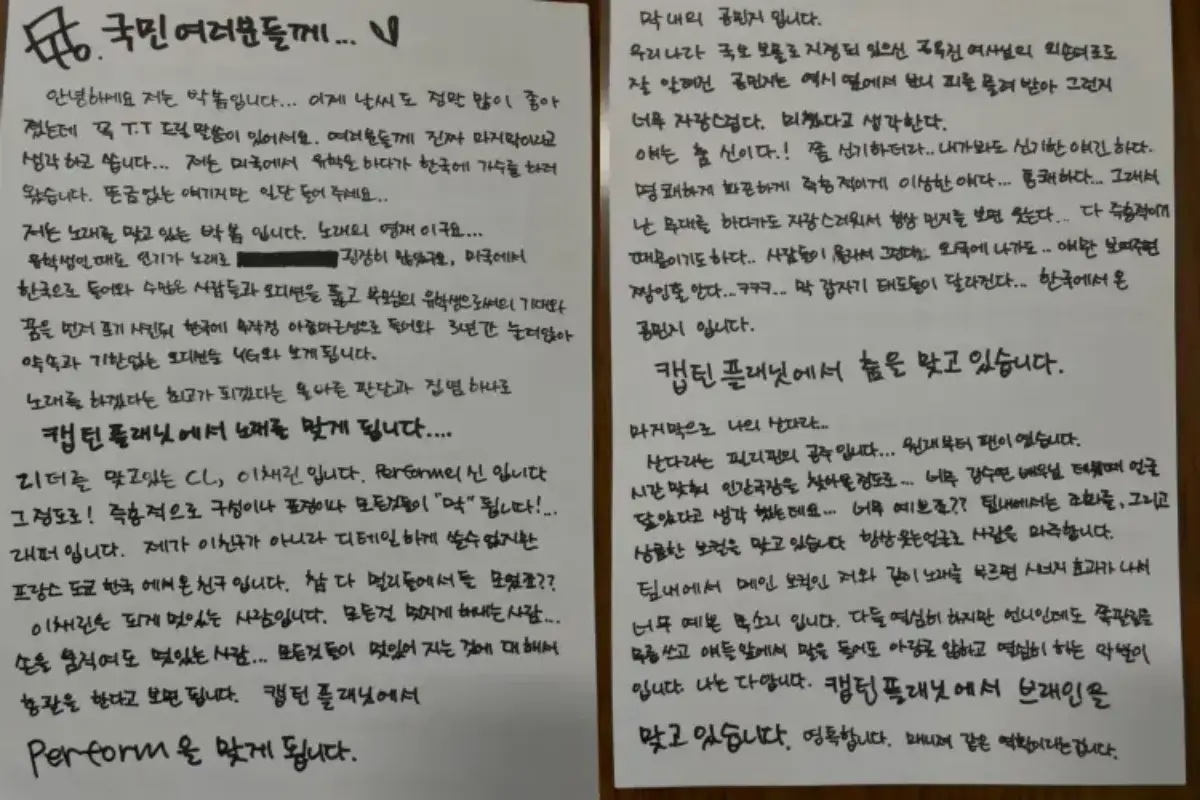 국민 여러분들께...
안녕하세요 저는 박봄입니다... 이제 날씨도 정말 많이 좋아
졌는데 꼭 T.T 드릴 말씀이 있어서요. 여러분들께 진짜 마지막이라고
생각하고 씁니다... 저는 미국에서 유학을 하다가 한국에 가수를 하러
왔습니다. 뜬금없는 얘기지만 일단 들어주세요..
저는 노래를 맞고 있는 박봄 입니다. 노래의 영재이구요...
유학생인때도 인기가 노래로 굉장히 많았구요, 미국에서
한국으로 들어와 수많은 사람들과 오디션을 뚫고 부모님의 유학생으로써의 기대와
꿈을 먼저 포기 시킨뒤 한국에 무작정 아줌마근성으로 들어와 3년간 눌러앉아
약속과 기한없는 오디션을 YG와 보게됩니다.
노래를 하겠다는 최고가 되겠다는 올바른 판단과 집념 하나로
캡틴플래닛에서 노래를 맞게 됩니다....
리더를 맞고있는 CL, 이채린 입니다. Perform의 신 입니다
그정도로! 즉흥적으로 구성이나 표정이나 모든것들이 "막" 됩니다!...
래퍼입니다. 제가 이친구가 아니라 디테일하게 쓸수없지만
프랑스 도쿄 한국 에서온 친구입니다. 참 다 멀리들에서들 모였죠??
이채린은 되게 멋있는 사람입니다. 모든걸 멋지게 해내는 사람...
손을 움직여도 멋있는 사람... 모든것들이 멋있어 지는 것에 대해서
총괄을 한다고 보면 됩니다. 캡틴플래닛에서
Perform을 맞게 됩니다.
막내의 공민지 입니다.
우리나라 국보 보물로 지정되 있으신 공옥진 여사님의 외손녀로도
잘 알려진 공민지는 역시 옆에서 보니 피를 물려 받아 그런지
너무 자랑스럽다. 미쳤다고 생각한다.
얘는 춤 신이다.! 쫌 신기하더라.. 내가봐도 신기한 애긴 하다.
명쾌하게 화끈하게 즉흥적이게 이상한 애다... 통쾌하다... 그래서
난 무대를 하다가도 자랑스러워서 항상 민지를 보면 웃는다... 다 즉흥적이기
때문이기도 하다.. 사람들이 몰라서 그런데.. 외국에 나가도.. 얘만 보여주면
짱인줄 안다...ㅋㅋㅋ... 막 갑자기 태도들이 달라진다... 한국에서 온
공민지 입니다.
캡틴플래닛에서 춤을 맞고 있습니다.
마지막으로 나의 산다라...
산다라는 필리핀의 공주입니다... 원래부터 팬이였습니다.
시간 맞춰 인간극장을 찾아볼정도로... 너무 강수연 배우님 데뷔때 얼굴
닮았다고 생각 했는데요... 너무 예쁘죠?? 팀내에서는 조화를, 그리고
상큼한 보컬을 맞고 있습니다 항상웃는얼굴로 사람을 마주합니다.
팀내에서 메인 보컬인 저와 같이 노래를 부르면 시너지 효과가 나서
너무 예쁜 목소리 입니다. 다들 열심히 하지만 언니인데도 쪽팔림을
무릅쓰고 얘들앞에서 말을 들어도 아랑곳 않하고 열심히 하는 악발이
입니다. 나는 다 압니다. 캡틴플래닛에서 브레인을
맞고 있습니다. 영특합니다. 매니져 같은 역할이라는겁니다.